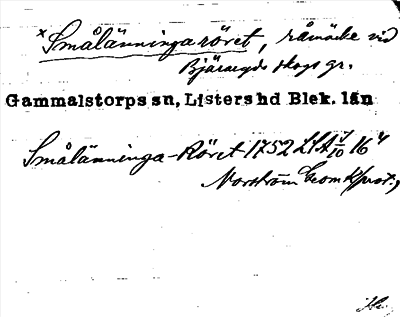 × Smålänningaröret, råmärke vid
Bjäraryds skogs gr.
Gammalstorps sn, Listers hd Blek. län
Smålänninga-Röret 1752 LSA 7/10 16
Norström Geom K/prot.,